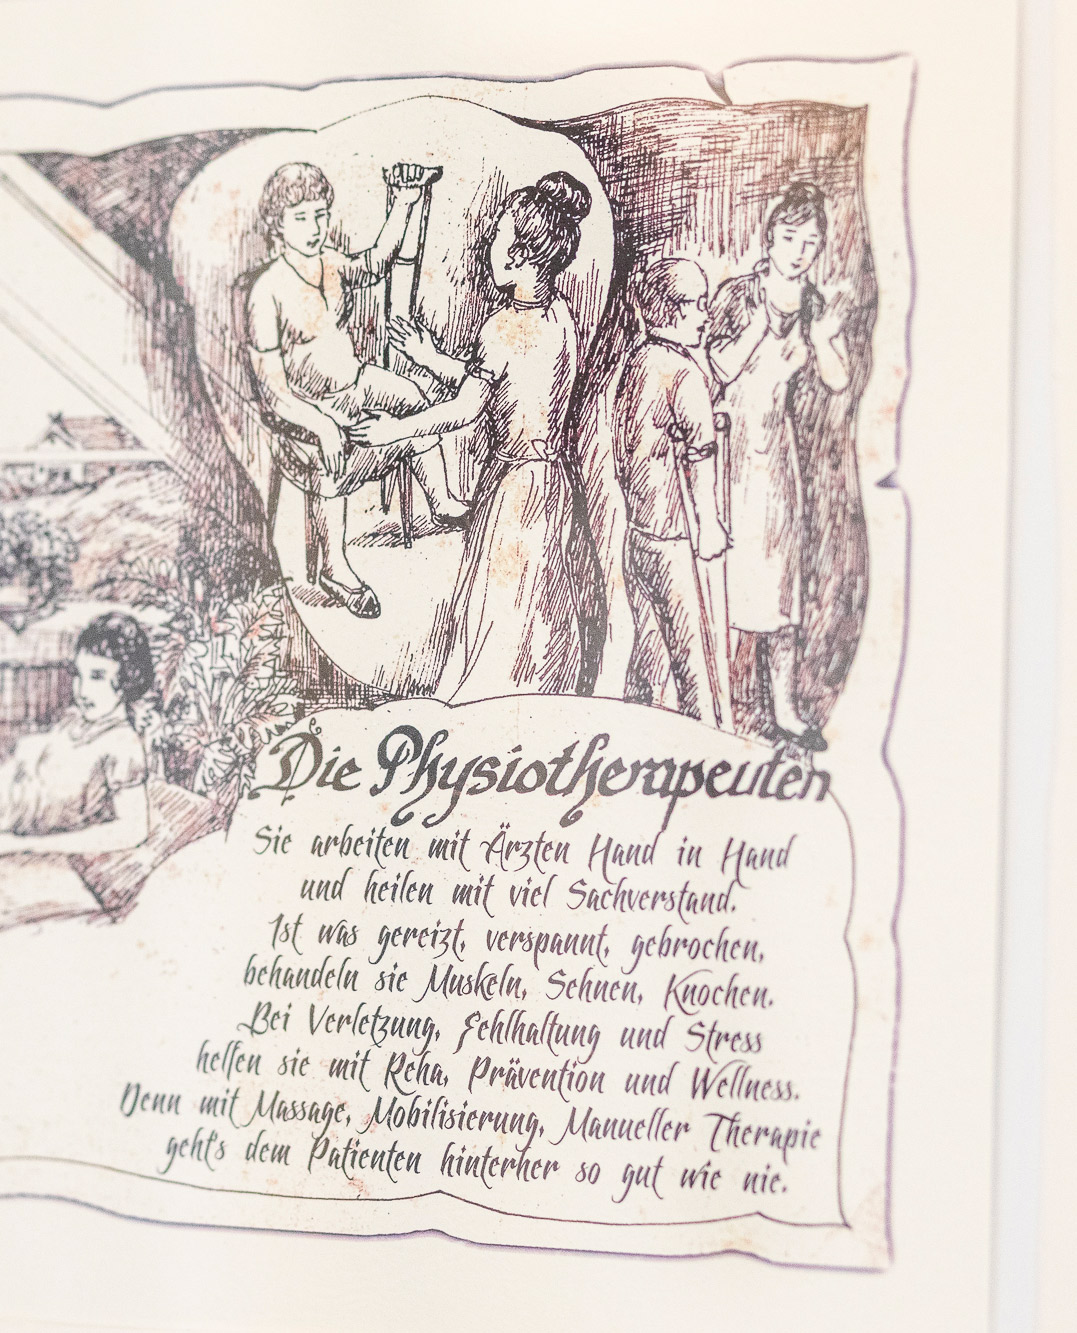 Die Physiotherapeuten
Sie arbeiten mit Ärzten Hand in Hand
und heilen mit viel Sachverstand.
Ist was gereizt, verspannt, gebrochen,
behandeln sie Muskeln, Sehnen, Knochen.
Bei Verletzung, Fehlhaltung und Stress
helfen sie mit Reha, Prävention und Wellness.
Denn mit Massage, Mobilisierung, Manueller Therapie
geht's dem Patienten hinterher so gut wie nie.